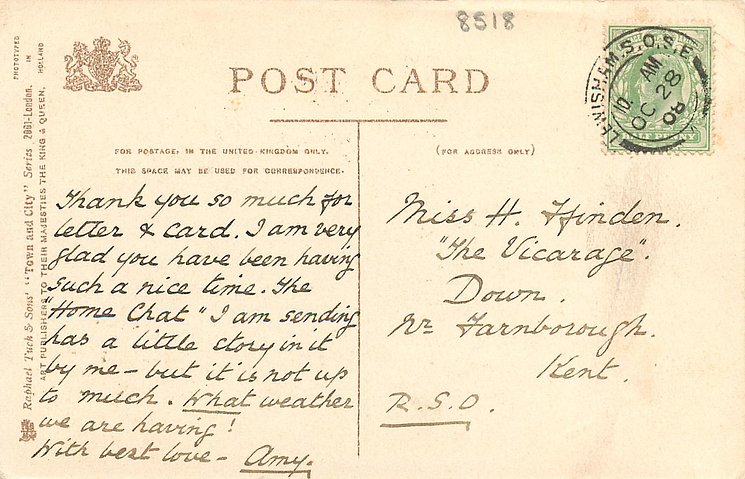 8518
POST CARD
FOR POSTAGE, IN THE UNITED KINGDOM ONLY.
THIS SPACE MAY BE USED FOR CORRESPONDENCE.
(FOR ADDRESS ONLY)
PHOTOTYPED
IN
HOLLAND
Raphael Tuck & Sons' "Town and City" Series 2061-London.
ART PUBLISHERS TO THEIR MAJESTIES THE KING & QUEEN.
LEWISHAM.S.O.S.E
10 AM
OC 28
08
HALF PENNY
Thank you so much for
letter & card. I am very
glad you have been having
such a nice time. The
"Home Chat" I am sending
has a little story in it
by me – but it is not up
to much. What weather
we are having!
With best love – Amy.
Miss H. Ffinden.
"The Vicarage".
Down.
Nr Farnborough.
Kent.
R.S.O.